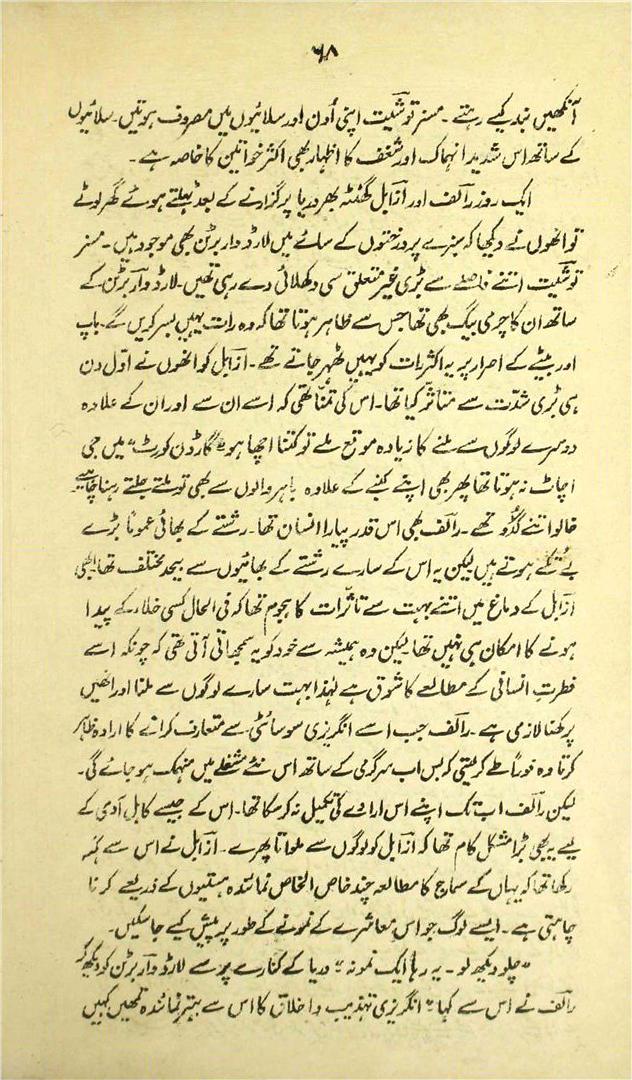 ۶۸
آنکھیں بند کیے رہتے ۔ مسز توشیت اپنی اُون اور سلائیوں میں مصروف ہوتیں۔ سلائیوں
کے ساتھ اس شدید انہماک اور شغف کا اظہار بھی اکثر خواتین کا خاصہ ہے ۔
ایک روز رالف اور ازابل گھنٹہ بھر دریا پر گزارنے کے بعد ٹہلتے ہوئے گھر لوٹے
تو انھوں نے دیکھا کہ سبزے پر درختوں کے سائے میں لارڈ وار برٹن بھی موجود ہیں ۔ مسز
توشیت اتنے فاصلے سے بڑی غیر متعلق سی دکھلائی دے رہی تھیں۔ لارڈ وار برٹن کے
ساتھ ان کا چرمی بیگ بھی تھا جس سے ظاہر ہوتا تھا کہ وہ رات یہیں بسر کریں گے۔ باپ
اور بیٹے کے اصرار پر یہ اکثر رات کو یہیں ٹھہر جاتے تھے ۔ ازابل کو انھوں نے اوّل دن
ہی بڑی شدّت سے متاثر کیا تھا۔ اس کی تمنّا تھی کہ اسے ان سے اور ان کے علاوہ
دوسرے لوگوں سے ملنے کا زیادہ موقع ملے تو کتنا اچھا ہو "گارڈن کورٹ" میں جی
اچاٹ نہ ہوتا تھا پھر بھی اپنے کنبے کے علاوہ باہر والوں سے بھی تو ملتے جلتے رہنا چاہیے۔
خالو اتنے گڈّو تھے ۔ رالف بھی اس قدر پیارا انسان تھا۔ رشتے کے بھائی عموماً بڑے
بے تکے ہوتے ہیں لیکن یہ اس کے سارے رشتے کے بھائیوں سے بیحد مختلف تھا۔ ابھی
ازابل کے دماغ میں اتنے بہت سے تاثرات کا ہجوم تھا کہ فی الحال کسی خلاء کے پیدا
ہونے کا امکان ہی نہیں تھا لیکن وہ ہمیشہ سے خود کو یہ سمجھاتی آتی تھی کہ چونکہ اسے
فطرتِ انسانی کے مطالعے کا شوق ہے لہٰذا بہت سارے لوگوں سے ملنا اور انھیں
پرکھنا لازمی ہے ۔ رالف جب اسے انگریزی سوسائٹی سے متعارف کرانے کا ارادہ ظاہر
کرتا وہ فوراً طے کر لیتی کہ بس اب سرگرمی کے ساتھ اس نئے مشغلے میں منہمک ہو جائے گی۔
لیکن رالف اب تک اپنے اس ارادے کی تکمیل نہ کر سکا تھا۔ اس کے جیسے کاہل آدمی کے
لیے یہ بھی بڑا مشکل کام تھا کہ ازابل کو لوگوں سے ملواتا پھرے ۔ ازابل نے اس سے کہہ
رکھا تھا کہ یہاں کے سماج کا مطالعہ چند خاص الخاص نمائندہ ہستیوں کے ذریعے کرنا
چاہتی ہے ۔ ایسے لوگ جو اس معاشرے کے نمونے کے طور پر پیش کیے جا سکیں۔
"چلو دیکھ لو ۔ یہ رہا ایک نمونہ" دریا کے کنارے پر سے لارڈ وار برٹن کو دیکھ کر
رالف نے اس سے کہا "انگریزی تہذیب و اخلاق کا اس سے بہتر نمائندہ تمھیں کہیں